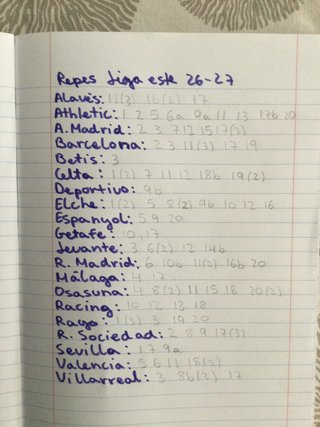 Repes Liga este 26-27
Alavés: 11(3) 16(2) 17
Athletic: 1 2 5 6a 9a 11 13 17b 20
A. Madrid: 2 3 7 12 15 17(3)
Barcelona: 2 3 11(3) 17 19
Betis: 3
Celta: 1(2) 7 11 12 18b 19(2)
Deportivo: 9b
Elche: 1(2) 5 8(2) 9b 10 12 16
Espanyol: 5 9 20
Getafe: 10, 17
Levante: 3 6(2) 12 14b
R. Madrid: 6 10b 11(2) 16b 20
Málaga: 4 17
Osasuna: 4 8(2) 11 15 18 20(2)
Racing: 10 12 13 18
Rayo: 1(3) 3 19 20
R. Sociedad: 2 8 9 17(3)
Sevilla: 1 7 9a
Valencia: 5 6 11 18(3)
Villarreal: 3 8b(2) 17